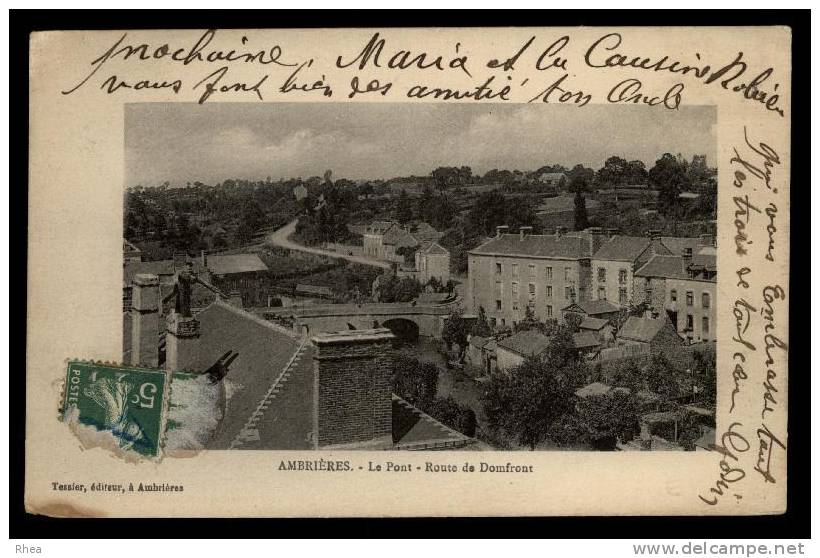 prochaine, Maria et la Cousine
vous font bien des amitié ton Oncle
qui vous embrasse tout
Les trois de tout
AMBRIÈRES. - Le Pont - Route de Domfront
Tessier, éditeur, à Ambrières
5c
POSTES
Rhea
www.delcampe.net